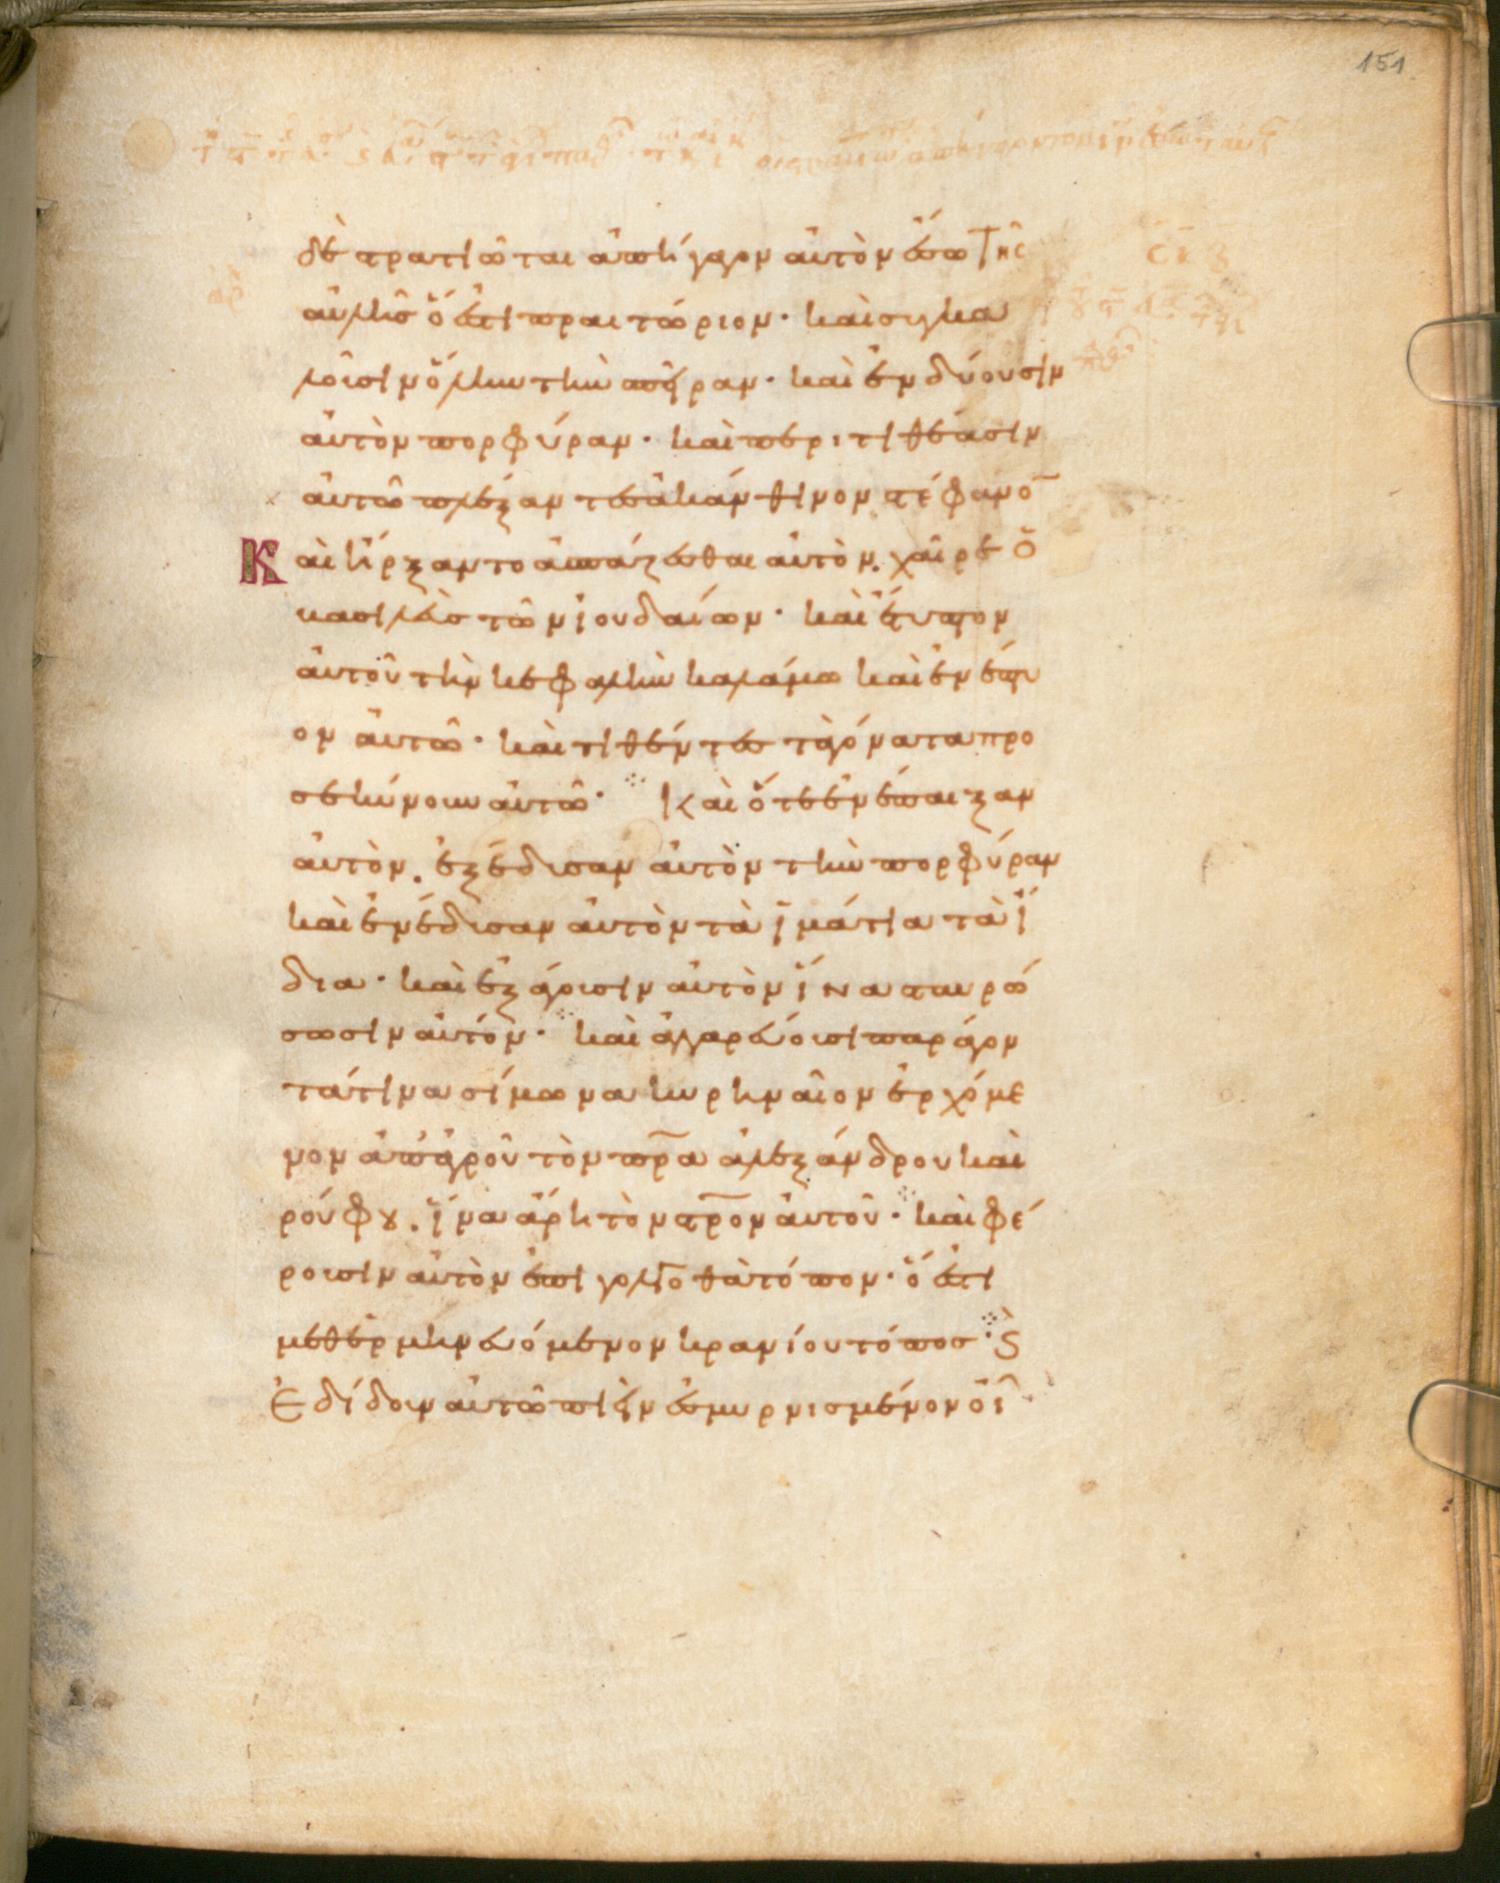 151
δὲ στρατιῶται ἀπήγαγον αὐτὸν ἔσω τῆς
αὐλῆς ὅ ἐστι πραιτώριον· καὶ συγκα
λοῦσιν ὅλην τὴν σπεῖραν· καὶ ἐνδύουσιν
αὐτὸν πορφύραν· καὶ περιτιθέασιν
αὐτῶ πλέξαντες ἀκάνθινον στέφανο̅
Καὶ ἤρξαντο ἀσπάζεσθαι αὐτὸν. χαῖρε ὁ
βασιλεὺς τῶν ἰουδαίων· καὶ ἔτυπτον
αὐτοῦ τὴν κεφαλὴν καλάμω καὶ ἐνέπτυ
ον αὐτῶ· καὶ τιθέντες τὰ γόνατα προ
σεκύνουν αὐτῶ· Καὶ ὅτε ἐνέπαιξαν
αὐτὸν. ἐξέδυσαν αὐτὸν τὴν πορφύραν
καὶ ἐνέδυσαν αὐτὸν τὰ ἱμάτια τὰ ἴ
δια· καὶ ἐξάγουσιν αὐτὸν ἵνα σταυρώ
σωσιν αὐτόν· καὶ ἀγγαρεύουσι παράγον
τά τινα σίμωνα κυρηναῖον ἐρχόμε
νον ἀπ' ἀγροῦ τὸν π̅ρ̅α ἀλεξάνδρου καὶ
ῥούφου. ἵνα ἄρη τὸν σ̅τ̅ρ̅ον αὐτοῦ· καὶ φέ
ρουσιν αὐτὸν ἐπὶ γολγοθᾶ τόπον· ὅ ἐστι
μεθερμηνευόμενον κρανίου τόπος· Ϛ
Ἐδίδουν αὐτῶ πιεῖν ἐσμυρνισμένον οἶ